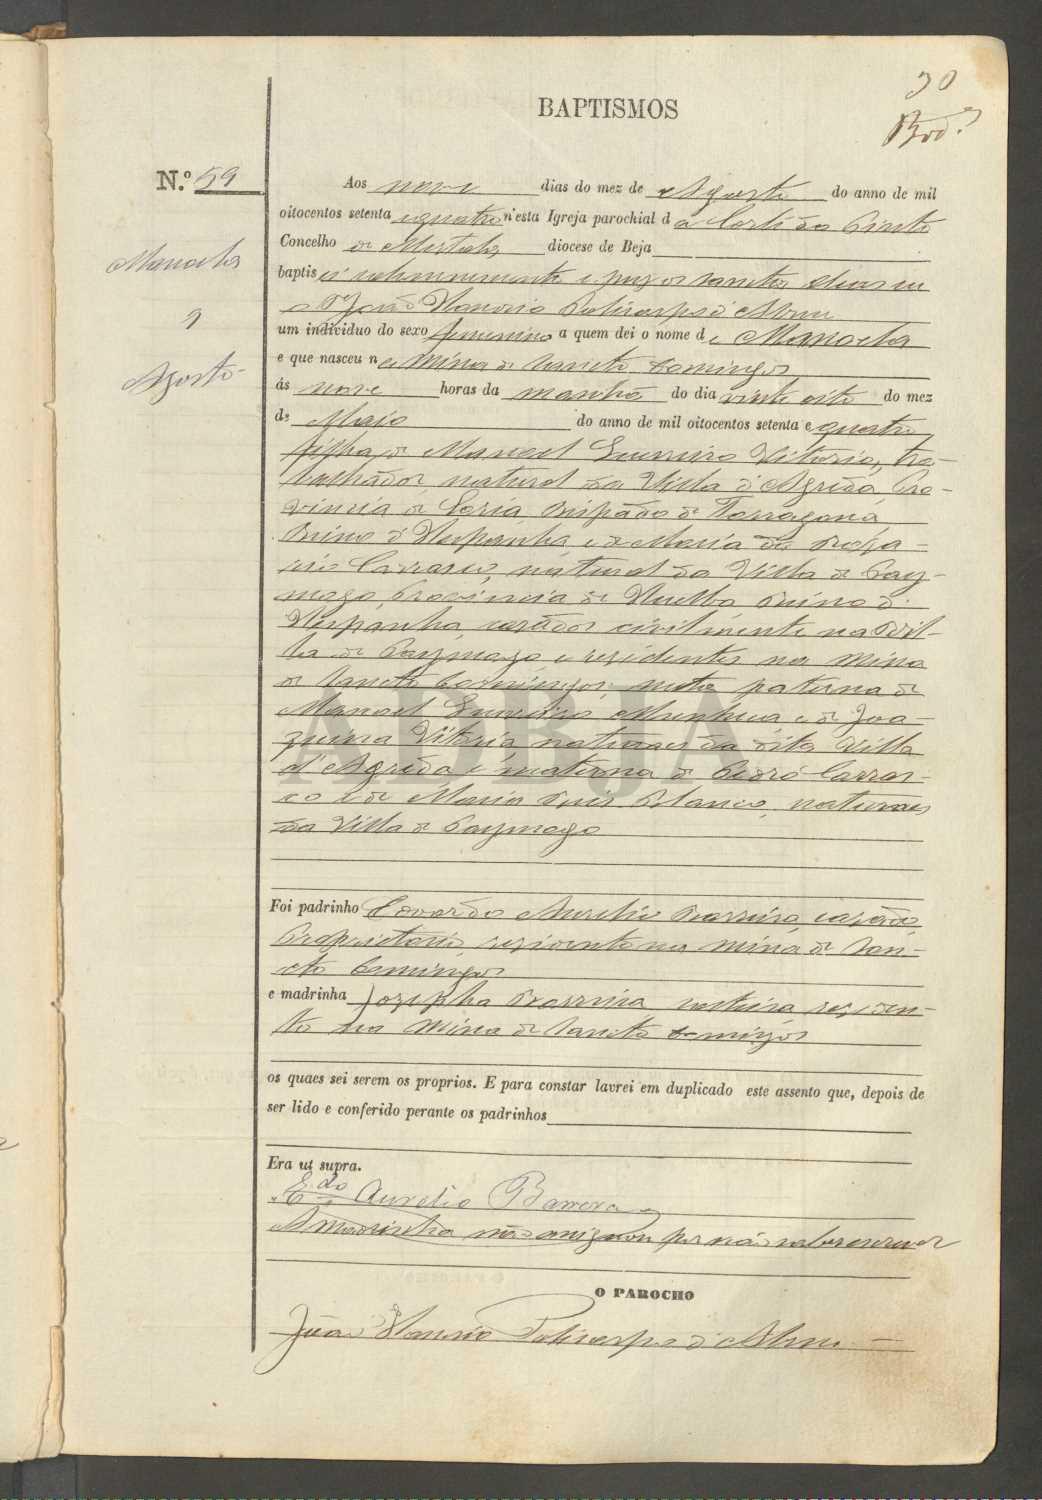 30
BAPTISMOS
N.º 59
Aos nove dias do mez de Agosto do anno de mil
oitocentos setenta e quatro n'esta Igreja parochial d a Corte do Pinto
Concelho de Mertola diocese de Beja
Manoela
baptisei solemnemente e puz os sanctos oleos eu
o P.e João Honorio Policarpo d'Abreu
9
um individuo do sexo femenino a quem dei o nome de Manoela
e que nasceu na Mina de Sancto Domingos
Agosto
ás nove horas da manhã do dia vinte oito do mez
de Maio do anno de mil oitocentos setenta e quatro
filha de Manoel Guerreiro Vitoria, tra-
balhador, natural da Villa d'Agreda, Pro-
vincia de Soria, Bispado de Tarragona,
Reino d'Hespanha, e de Maria do Roza-
rio Carrasco, natural da Villa de Pay-
mogo, Provincia de Huelba Reino d'
Hespanha, casados civilmente na Vil-
la de Paymogo, e residentes na Mina
de Sancto Domingos; neta paterna de
Manoel Guerreiro e de Joa-
quina Vitoria, naturaes da dita Villa
d'Agreda, e materna de Pedro Carras-
co e de Maria Blanco, naturaes
da Villa de Paymogo
ADBJA
Foi padrinho Eduardo Aurelio Barreira, casado
Proprietario, residente na Mina de San-
cto Domingos
e madrinha Jozepha Barreira, residen-
te na Mina de Sancto Domingos
os quaes sei serem os proprios. E para constar lavrei em duplicado este assento que, depois de
ser lido e conferido perante os padrinhos
Era ut supra.
E.do Aurelio Barrera
A madrinha não assignou por não saber escrever
O PAROCHO
João Honorio Policarpo d'Abreu